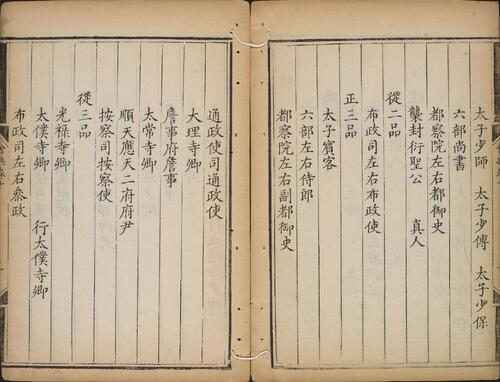 太子少師 太子少傅 太子少保
六部尚書
都察院左右都御史
襲封衍聖公 真人
從二品
布政司左右布政使
正三品
太子賓客
六部左右侍郎
都察院左右副都御史
通政使司通政使
大理寺卿
詹事府詹事
太常寺卿
順天應天二府府尹
按察司按察使
從三品
光祿寺卿
太僕寺卿 行太僕寺卿
布政司左右叅政